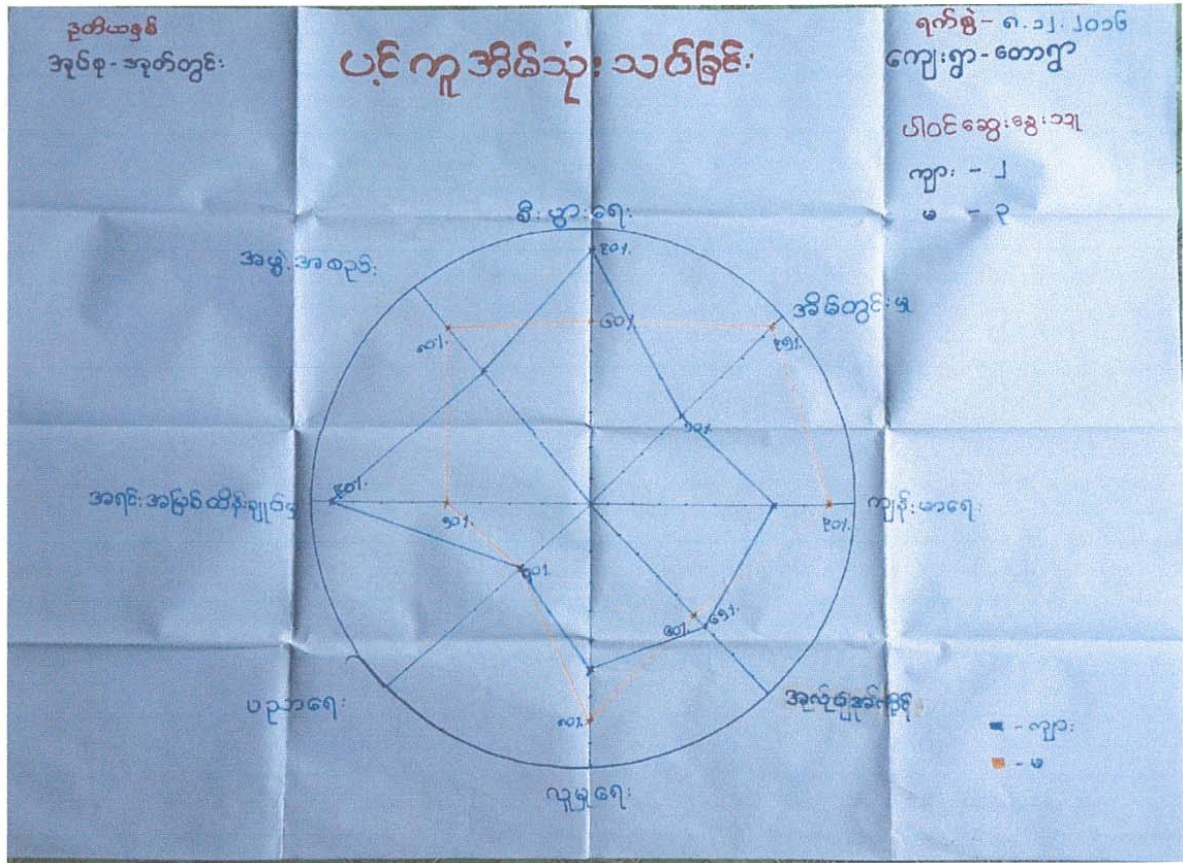 ဒုတိယနှစ်
အုပ်စု - အုတ်တွင်း
ပင့်ကူအိမ်သုံးသပ်ခြင်း
ရက်စွဲ - ၈.၁၂.၂၀၁၆
ကျေးရွာ - တောရွာ
ပါဝင်ဆွေးနွေးသူ
ကျား - ၂
မ - ၃
စီးပွားရေး
၉၀%
၆၀%
အိမ်တွင်းမှု
၉၅%
ကျန်းမာရေး
၉၀%
အလုပ်အကိုင်
၆၅%
၆၀%
လူမှုရေး
၈၀%
ပညာရေး
အရင်းအမြစ်ထိန်းချုပ်မှု
၉၀%
၅၀%
အဖွဲ့အစည်း
၈၀%
- ကျား
- မ